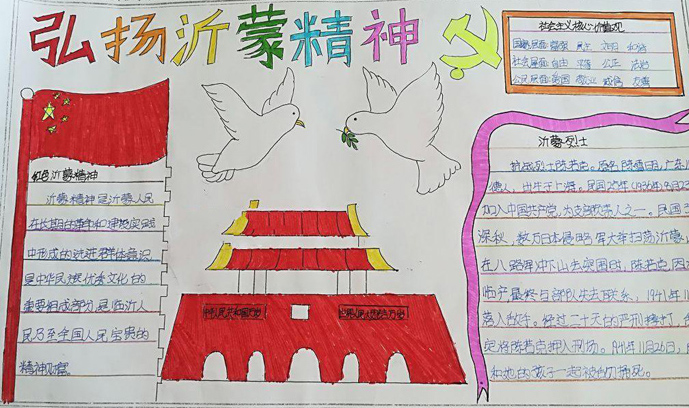 弘扬沂蒙精神
社会主义核心价值观
国家层面:富强 民主 文明 和谐
社会层面:自由 平等 公正 法治
公民层面:爱国 敬业 诚信 友善
红色沂蒙精神
沂蒙精神是沂蒙人民
在长期的革命和建设实践
中形成的先进群体意识
是中华民族优秀文化的
重要组成部分是临沂人
民乃至全国人民宝贵的
精神财富。
中华人民共和国万岁
世界人民大团结万岁
沂蒙烈士
抗战烈士陈若克。原名陈雪明,广东
德人,出生于上海。民国25年(1936年)8月
加入中国共产党,为支部负责人之一。民国
深秋,数万日本侵略军大举扫荡沂蒙,
在八路军冲下山去突围时,陈若克,因
临产最终与部队失去联系,1941年11
落入敌手。经过二十天的严刑拷打,
定将陈若克押入刑场。1941年11月26日,
和她的孩子一起被刺刀捅死。